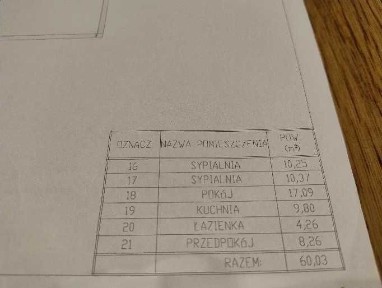 OZNACZ NAZWA POMIESZCZENIA POW. (m²)
16 SYPIALNIA 10,25
17 SYPIALNIA 10,37
18 POKÓJ 17,09
19 KUCHNIA 9,80
20 ŁAZIENKA 4,26
21 PRZEDPOKÓJ 8,26
RAZEM: 60,03